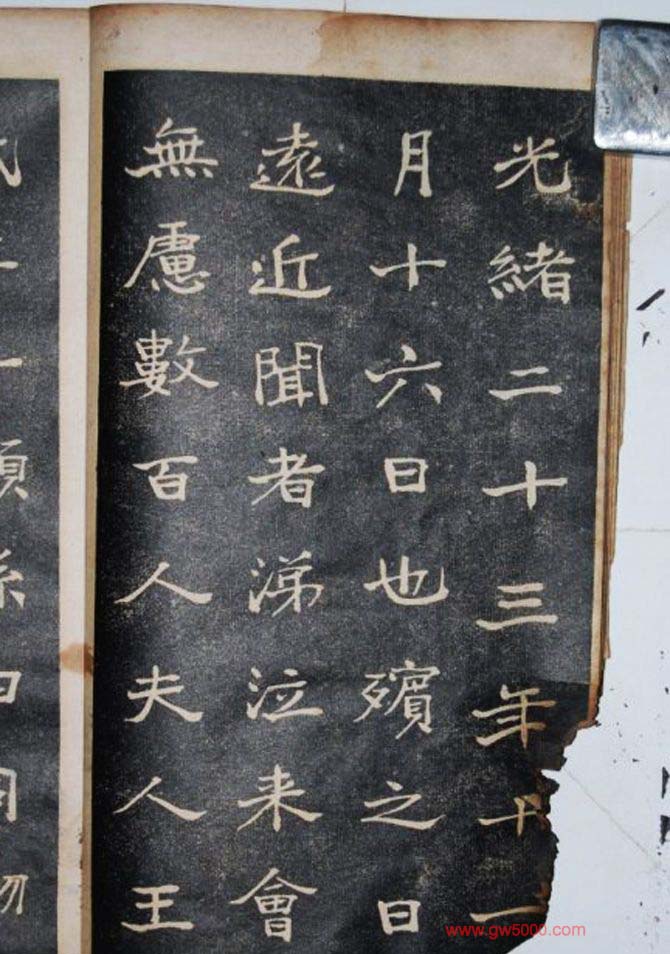 光緒二十三年十一
月十六日也殯之日
遠近聞者涕泣来會
無慮數百人夫人王
www.gw5000.com